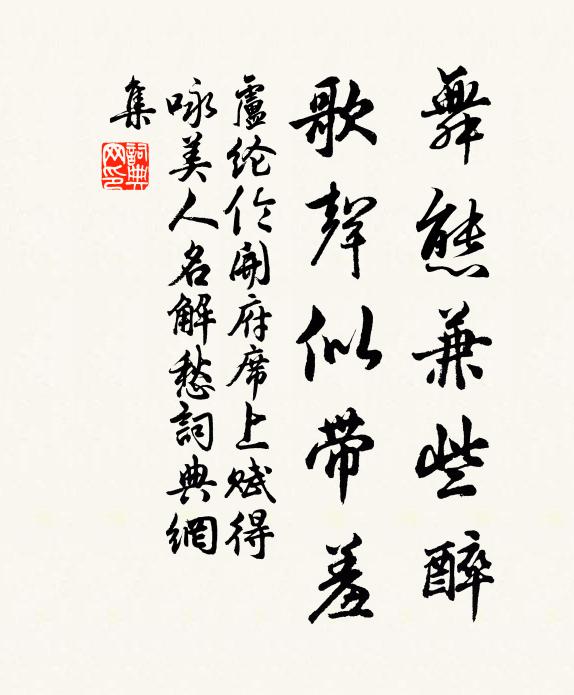 舞態兼些醉
歌聲似帶羞
盧纶伦開府席上賦得
咏美人名解愁詞典網
集
詞典网印